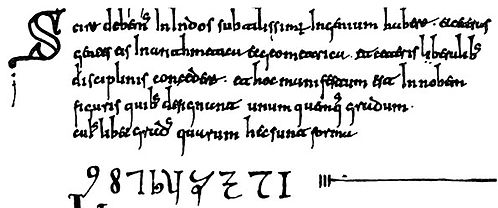 Scire debemꝰ In Indos subtilissimū Ingenium habere · et ceteras
gentes eis In arithmetica et geometrica · et ceteris liberalibꝰ
disciplinis concedere · et hoc manifestum est In nobem
figuris quibꝰ designant unum quemqꝫ gradum ·
cuiꝰlibet gradꝰ quarum hec sunt forma
9 8 7 6 5 4 3 2 1